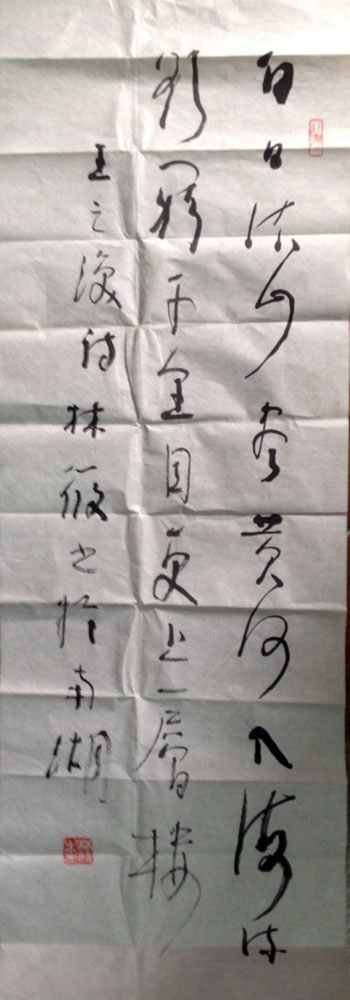 白日依山尽黄河入海流
欲穷千里目更上一層楼
王之涣诗林筱书於南湖